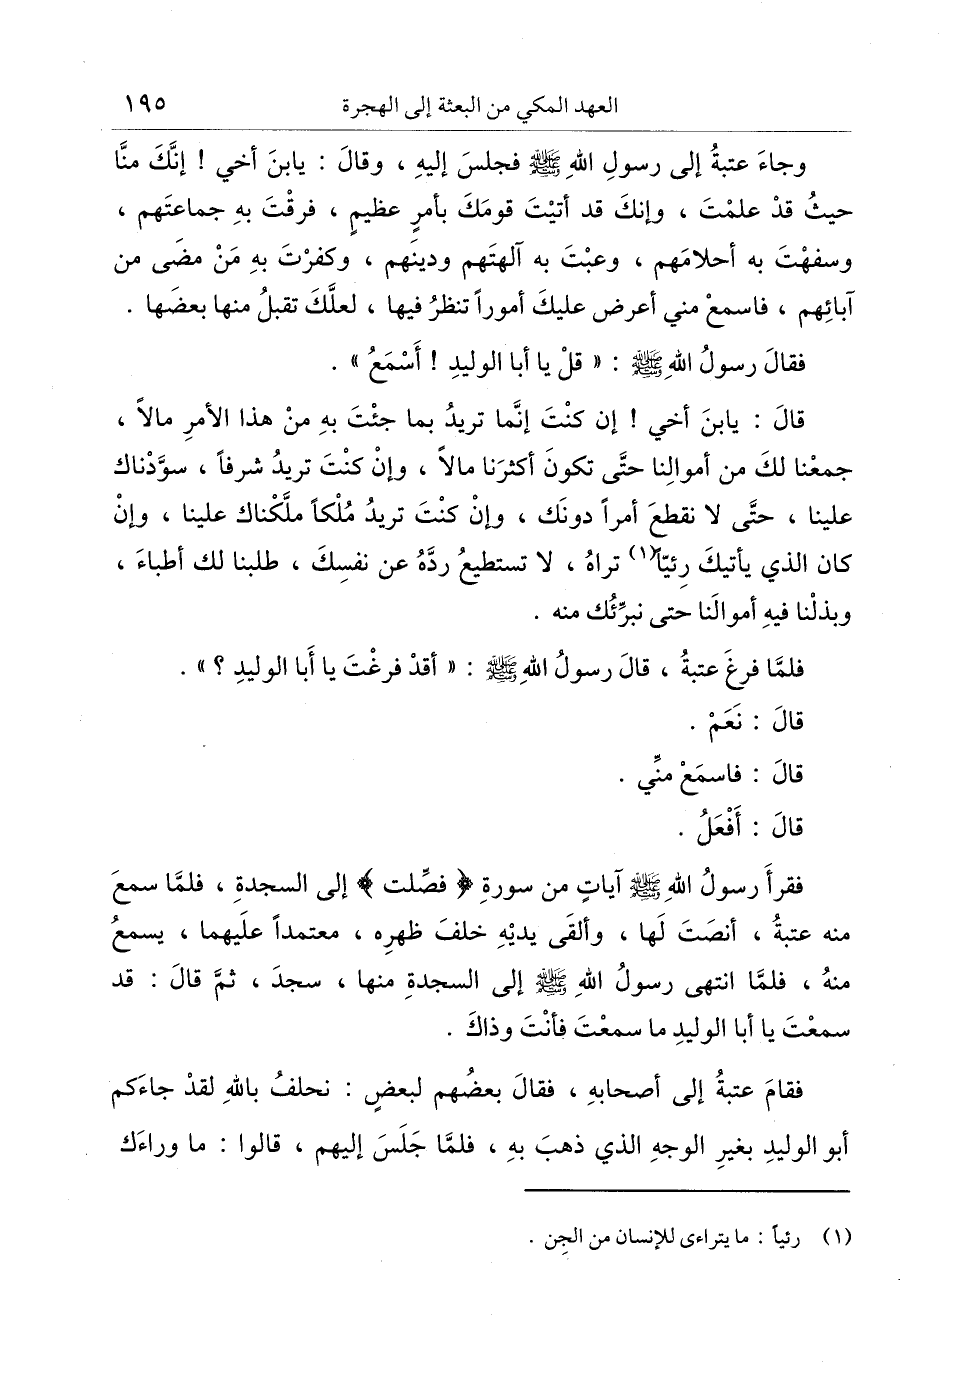 العهد المكي من البعثة إلى الهجرة ١٩٥
وجاءَ عتبةُ إلى رسولِ اللهِ ﷺ فجلسَ إليهِ ، وقالَ : يابنَ أخي ! إنَّكَ منَّا
حيثُ قدْ علمْتَ ، وإنكَ قد أتيْتَ قومَكَ بأمرٍ عظيمٍ ، فرقْتَ بهِ جماعتَهم ،
وسفهْتَ به أحلامَهم ، وعبْتَ به آلهتَهم ودينَهم ، وكفرْتَ بهِ مَنْ مضَى من
آبائِهم ، فاسمعْ مني أعرض عليكَ أموراً تنظرُ فيها ، لعلَّكَ تقبلُ منها بعضَها .
فقالَ رسولُ اللهِ ﷺ : « قلْ يا أبا الوليدِ ! أَسْمَعُ » .
قالَ : يابنَ أخي ! إن كنْتَ إنَّما تريدُ بما جئْتَ بهِ منْ هذا الأمرِ مالاً ،
جمعْنا لكَ من أموالِنا حتَّى تكونَ أكثرَنا مالاً ، وإنْ كنْتَ تريدُ شرفاً ، سوَّدْناك
علينا ، حتَّى لا نقطعَ أمراً دونَك ، وإنْ كنْتَ تريدُ مُلْكاً ملَّكْناك علينا ، وإنْ
كان الذي يأتيكَ رِئيّاً(١) تراهُ ، لا تستطيعُ ردَّهُ عن نفسِكَ ، طلبنا لك أطباءَ ،
وبذلْنا فيهِ أموالَنا حتى نبرِّئُك منه .
فلمَّا فرغَ عتبةُ ، قالَ رسولُ اللهِ ﷺ : « أقدْ فرغْتَ يا أَبا الوليدِ ؟ » .
قالَ : نَعَمْ .
قالَ : فاسمَعْ منِّي .
قالَ : أَفْعَلُ .
فقرأَ رسولُ اللهِ ﷺ آياتٍ من سورةِ ﴿ فصِّلت ﴾ إلى السجدةِ ، فلمَّا سمعَ
منه عتبةُ ، أنصَتَ لَها ، وألقَى يديْهِ خلفَ ظهرِه ، معتمداً علَيهما ، يسمعُ
منهُ ، فلمَّا انتهى رسولُ اللهِ ﷺ إلى السجدةِ منها ، سجدَ ، ثمَّ قالَ : قد
سمعْتَ يا أبا الوليدِ ما سمعْتَ فأنْتَ وذاكَ .
فقامَ عتبةُ إلى أصحابهِ ، فقالَ بعضُهم لبعضٍ : نحلفُ باللهِ لقدْ جاءَكم
أبو الوليدِ بغيرِ الوجهِ الذي ذهبَ بهِ ، فلمَّا جَلَسَ إليهم ، قالوا : ما وراءَك
(١) رئياً : ما يتراءى للإنسان من الجِن .